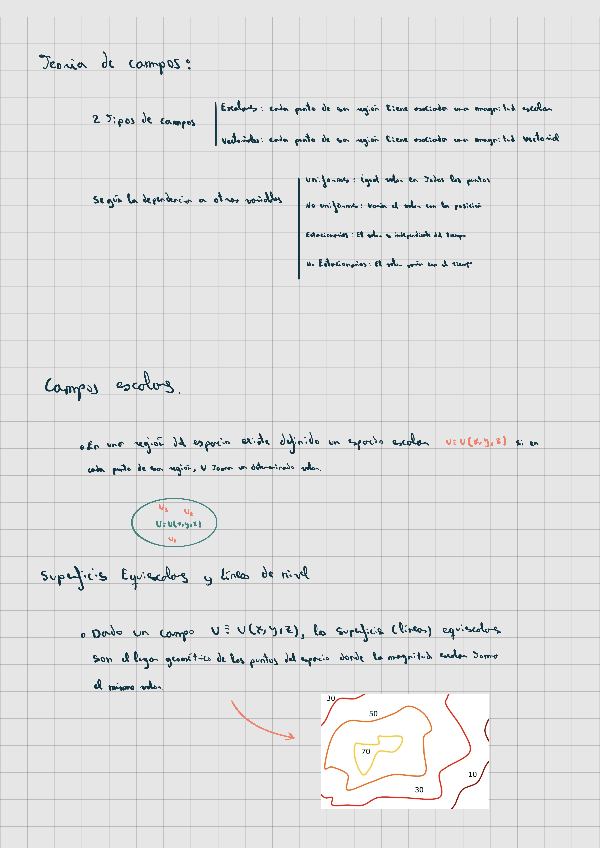 Teoría de campos:
2 Tipos de campos
Escalares: cada punto de esa región tiene asociada una magnitud escalar
Vectoriales: cada punto de esa región tiene asociada una magnitud vectorial
Según la dependencia a otras variables
Uniformes: igual valor en todos los puntos
No uniformes: Varía el valor con la posición
Estacionarios: El valor es independiente del tiempo
No Estacionarios: El valor varía con el tiempo
Campos escalar.
En una región del espacio existe definido un espacio escalar U≡U(x,y,z) si en
cada punto de esa región, U toma un determinado valor.
U3 U2
U≡U(x,y,z)
U1
Superficies Equiescalares y líneas de nivel
Dado un campo U≡U(x,y,z), las superficies (líneas) equiescalares
son el lugar geométrico de los puntos del espacio donde la magnitud escalar toma
el mismo valor.
30
50
70
10
30